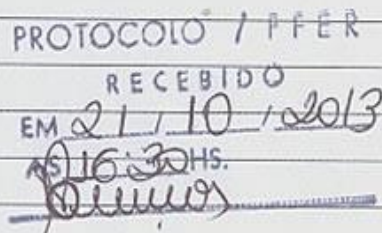 PROTOCOLO / PFER
RECEBIDO
EM 21 / 10 / 2013
AS 16:30 HS.